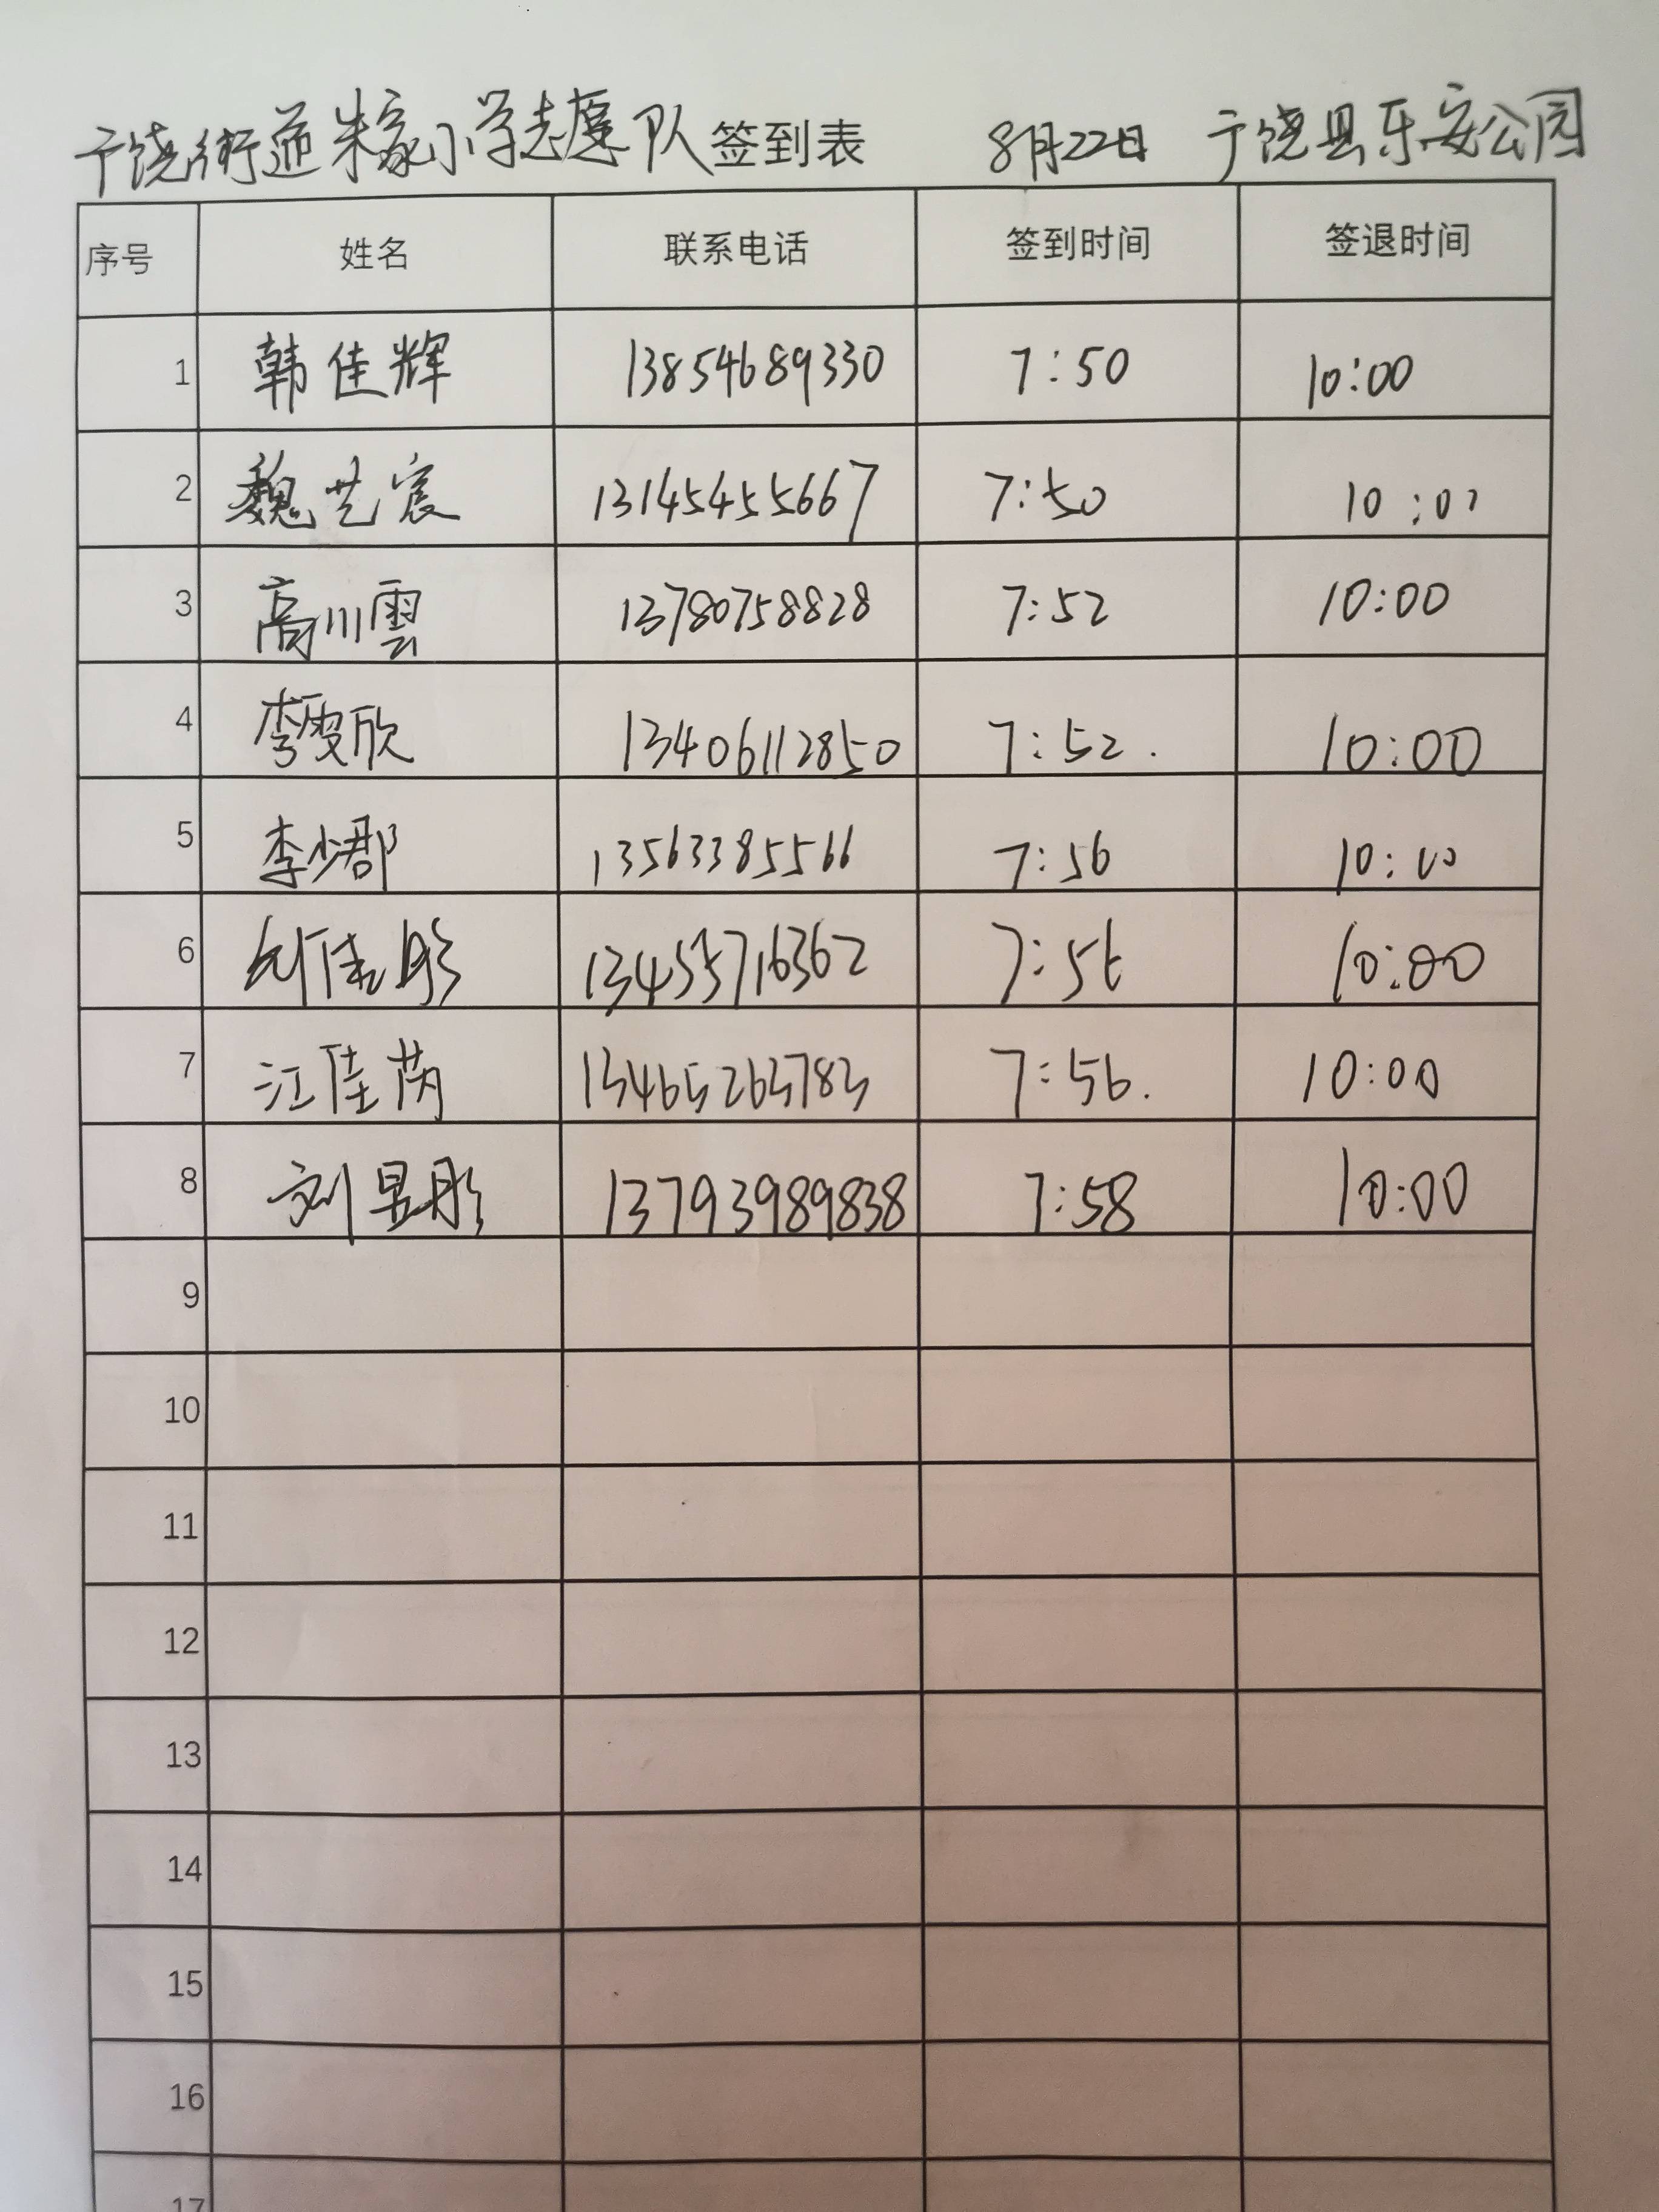 广饶街道朱家小学志愿队签到表 8月22日 广饶县乐安公园
序号 姓名 联系电话 签到时间 签退时间
1 韩佳辉 13854689330 7:50 10:00
2 魏艺宸 13145455667 7:50 10:00
3 高川雲 13780758828 7:52 10:00
4 李雯欣 13406112850 7:52. 10:00
5 李少郡 13563385566 7:56 10:00
6 刘佳彤 13455716362 7:56 10:00
7 江佳芮 13465263783 7:56. 10:00
8 刘昱彤 13793989838 7:58 10:00
9
10
11
12
13
14
15
16
17